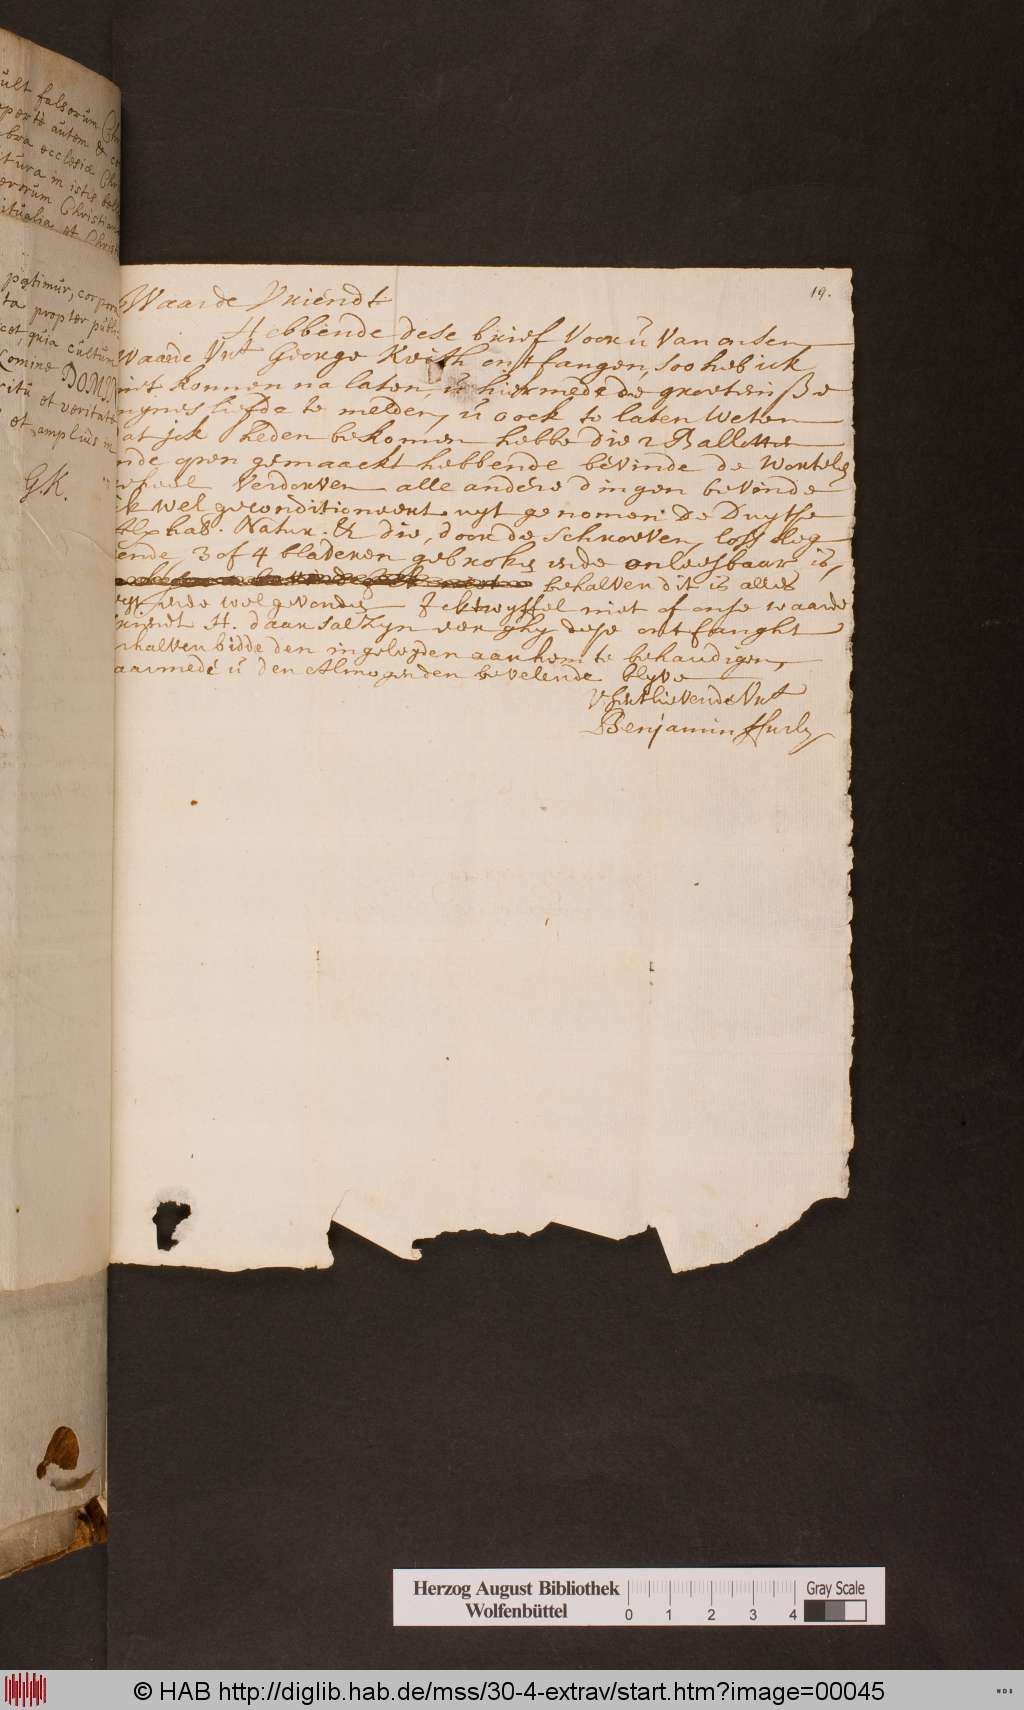 ult falsorum
aperte autem &
bra ecclesiæ
itura in istis
erorum Christian
itualia et Christ
patimur, corpora
ta propter publ
cet, quia cultum
Comine DOMI
ritu et veritate
et amplius in
G K.
19.
Waarde Vriendt
Hebbende dese brief Voor u Van onsen
Waarde Vrt George Keith ontfangen, soo heb ick
niet konnen na laten, u hiermede de groetenisse
mynes liefde te melden, u oock te laten weten
at jck heden bekomen hebbe die 2 Balletten
nde open gemaackt hebbende bevinde de wortels
geheel Verdorven alle andere dingen bevinde
ik wel geconditioneert uyt genomen De Duytse
Alphab. Natur. & die, door de schroeven, los
ende 3 of 4 bladeren gebroken ende onleesbaar is,
behalven dit is alles
ende wel gevonden Ick twyffel niet of onse waarde
vriendt H. daar sal zyn eer ghy dese ontfanght
derhalven bidde den ingeleyden aan hem te behandigen,
aarmede u den Almogenden bevelende blyve
Vrt
Benjamin Furly
Herzog August Bibliothek
Wolfenbüttel
0 1 2 3 4
Gray Scale
© HAB http://diglib.hab.de/mss/30-4-extrav/start.htm?image=00045